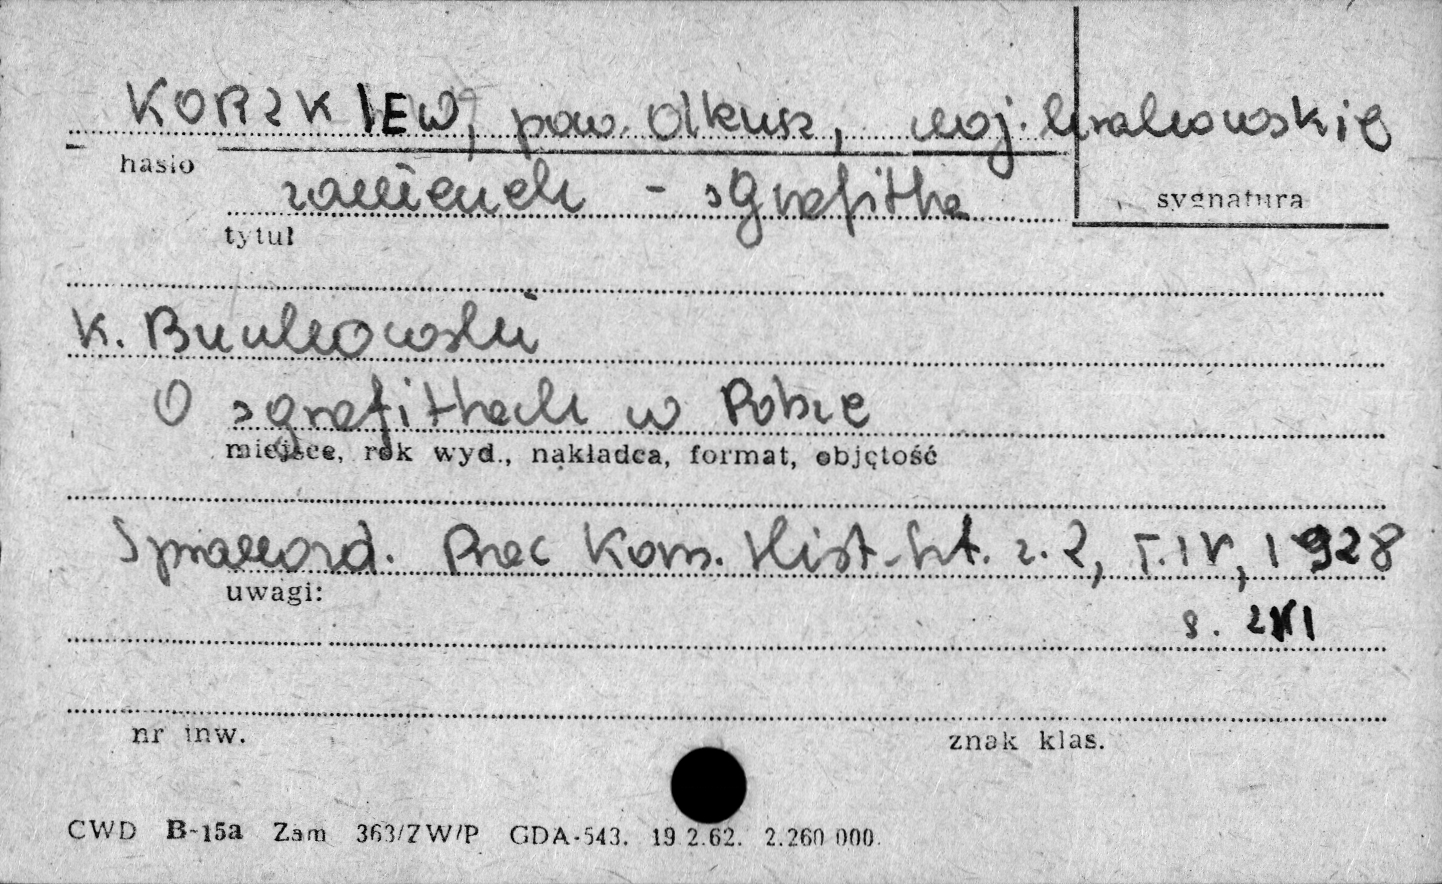 KORZKIEW, pow. Olkusz, woj. krakowskie
hasło
zameczek - sgrafitta
sygnatura
tytuł
K. Binkowski
O sgrafittach w Polsce
miejsce, rok wyd., nakładca, format, objętość
Sprawozd. Prac Kom. Hist. Szt. z. 2, T. IV, 1928
uwagi:
s.
nr inw.
znak klas.
CWD B-15a Zam 363/ZW/P GDA-543. 19.2.62. 2.260 000.